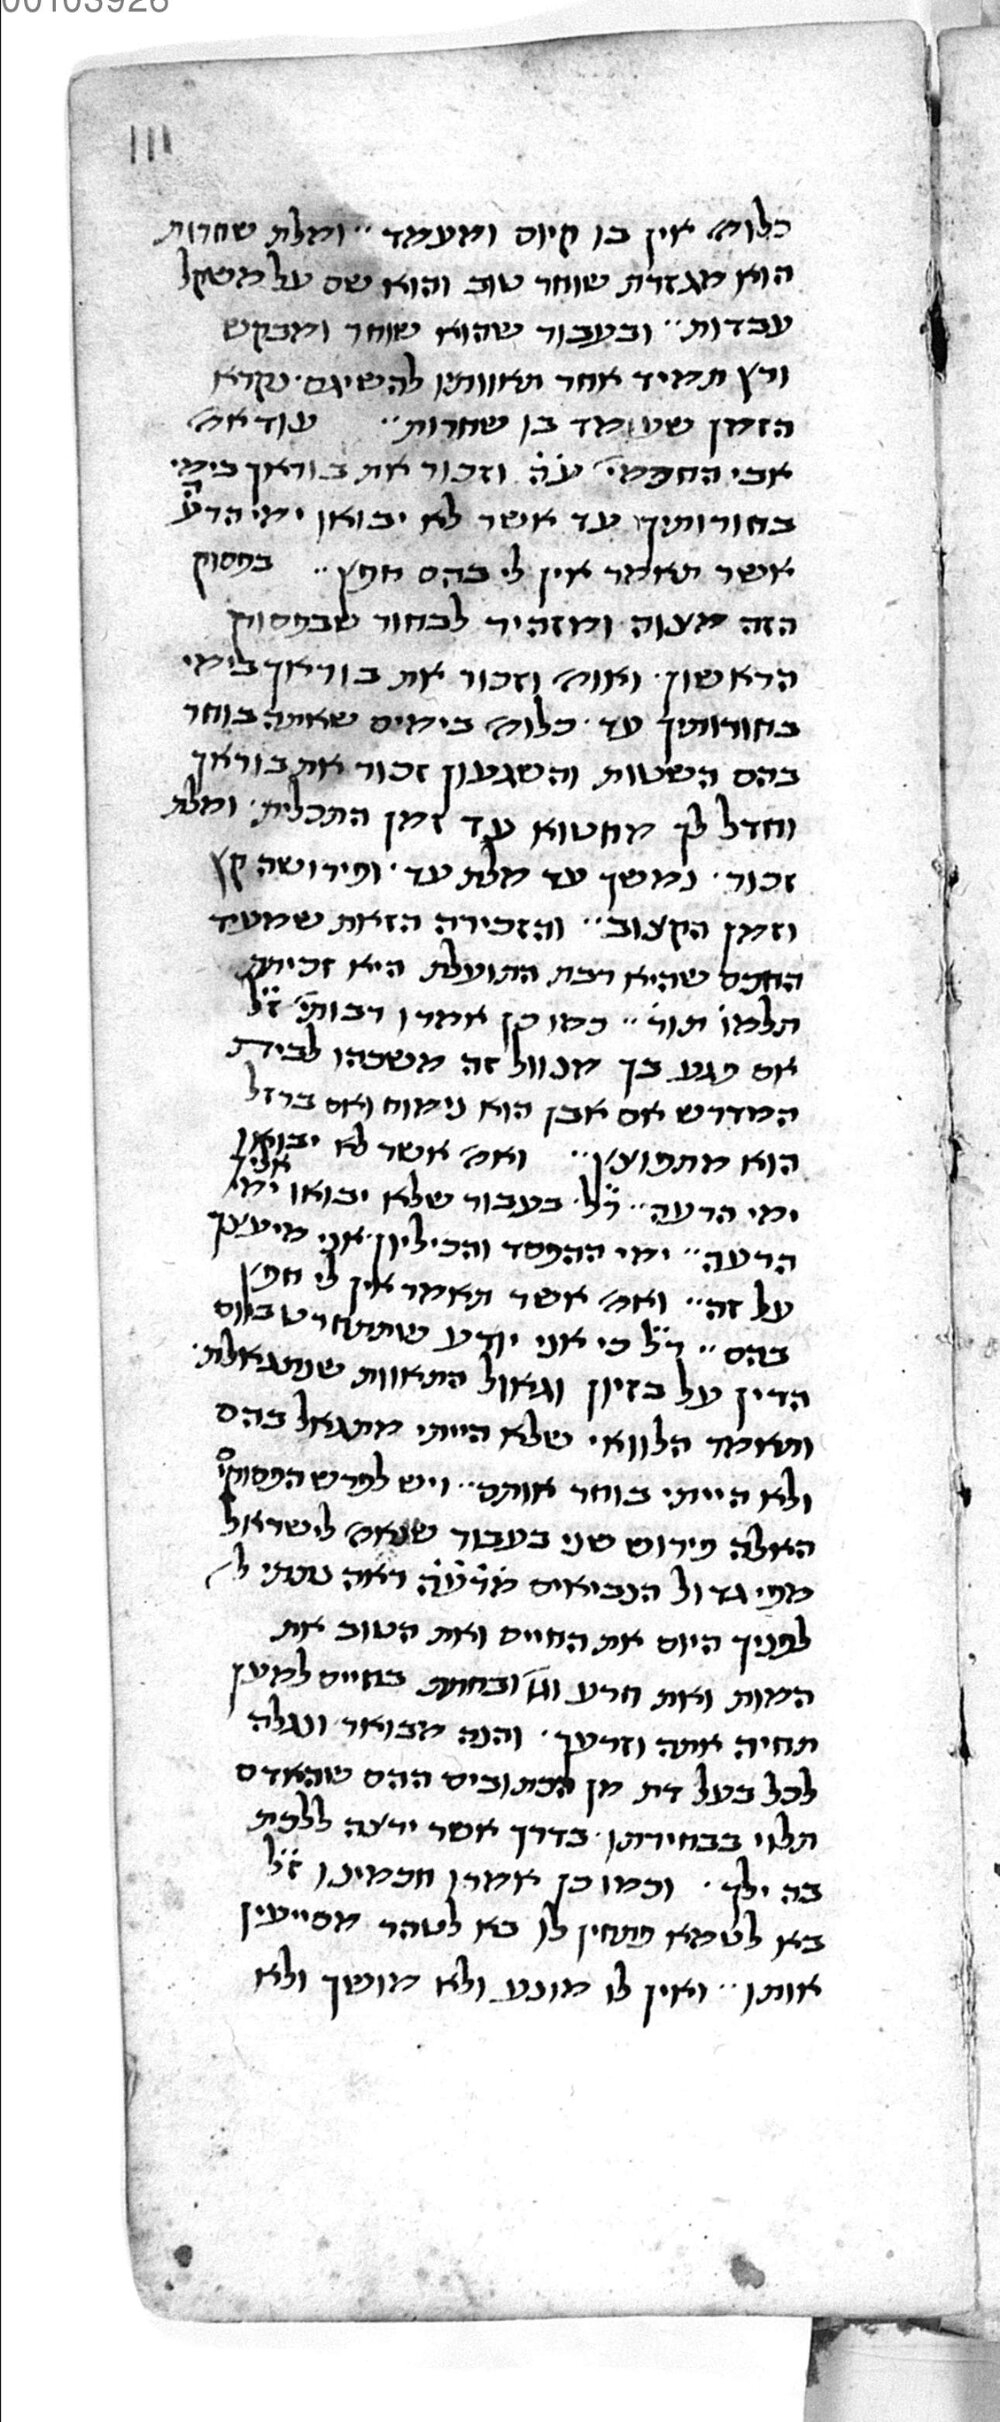 00103926
111
כלומ׳ אין בו קיום ומעמד ·· ומלת שחרות
הוא מגזרת שוחר טוב והוא שם על משקל
עבדות ·· ובעבור שהוא שוחר ומבקש
ורץ תמיד אחר תאוותיו להשיגם · נקרא
הזמן שעומד בו שחרות ·· עוד אמ׳
אבי החכמי׳ ע״ה וזכור את בוראך בימי
בחורותיך עד אשר לא יבואו ימי הרעה
אשר תאמר אין לי בהם חפץ ·· בפסוק
הזה מצוה ומזהיר לבחור שבפסוק
הראשון · ואומ׳ וזכור את בוראך בימי
בחורותיך עד · כלומ׳ בימים שאתה בוחר
בהם השטות והשגעון זכור את בוראך
וחדל לך מחטוא עד זמן התכלית · ומלת
זכור · נמשך עד מלת עד · ופירושה קץ
וזמן הקצוב ·· והזכירה הזאת שמעיד
החכם שהיא רבת התועלת היא זכירת
תלמו׳ תור׳ ·· כמו כן אמרו רבותי׳ ז״ל
אם פגע בך מנוול זה משכהו לבית
המדרש אם אבן הוא נימוח ואם ברזל
הוא מתפוצץ ·· ואמ׳ אשר לא יבואו
ימי הרעה ·· ר״ל · בעבור שלא יבואו אליך ימי
הרעה ·· ימי ההפסד והכיליון · אני מיעצך
על זה ·· ואמ׳ אשר תאמר אין לי חפץ
בהם ·· ר״ל כי אני יודע שתתחרט ביום
הדין על בזיון וגאול התאוות שנתגאלת ·
ותאמר הלוואי שלא הייתי מתגאל בהם
ולא הייתי בוחר אותם ·· ויש לפרש הפסוקים
האלה פירוש שני בעבור שנאמ׳ לישראל
מפי גדול הנביאים מר״ע״ה ראה נתתי ל׳
לפניך היום את החיים ואת הטוב את
המות ואת הרע וג׳ ובחרת בחיים למען
תחיה אתה וזרעך · והנה מבואר ונגלה
לכל בעל דת מן הכתובים ההם שהאדם
תלוי בבחירתו · בדרך אשר ירצה ללכת
בה ילך · וכמו כן אמרו חכמינו ז״ל
בא לטמא פותחין לו בא לטהר מסייעין
אותו ·· ואין לו מונע ולא מושך ולא